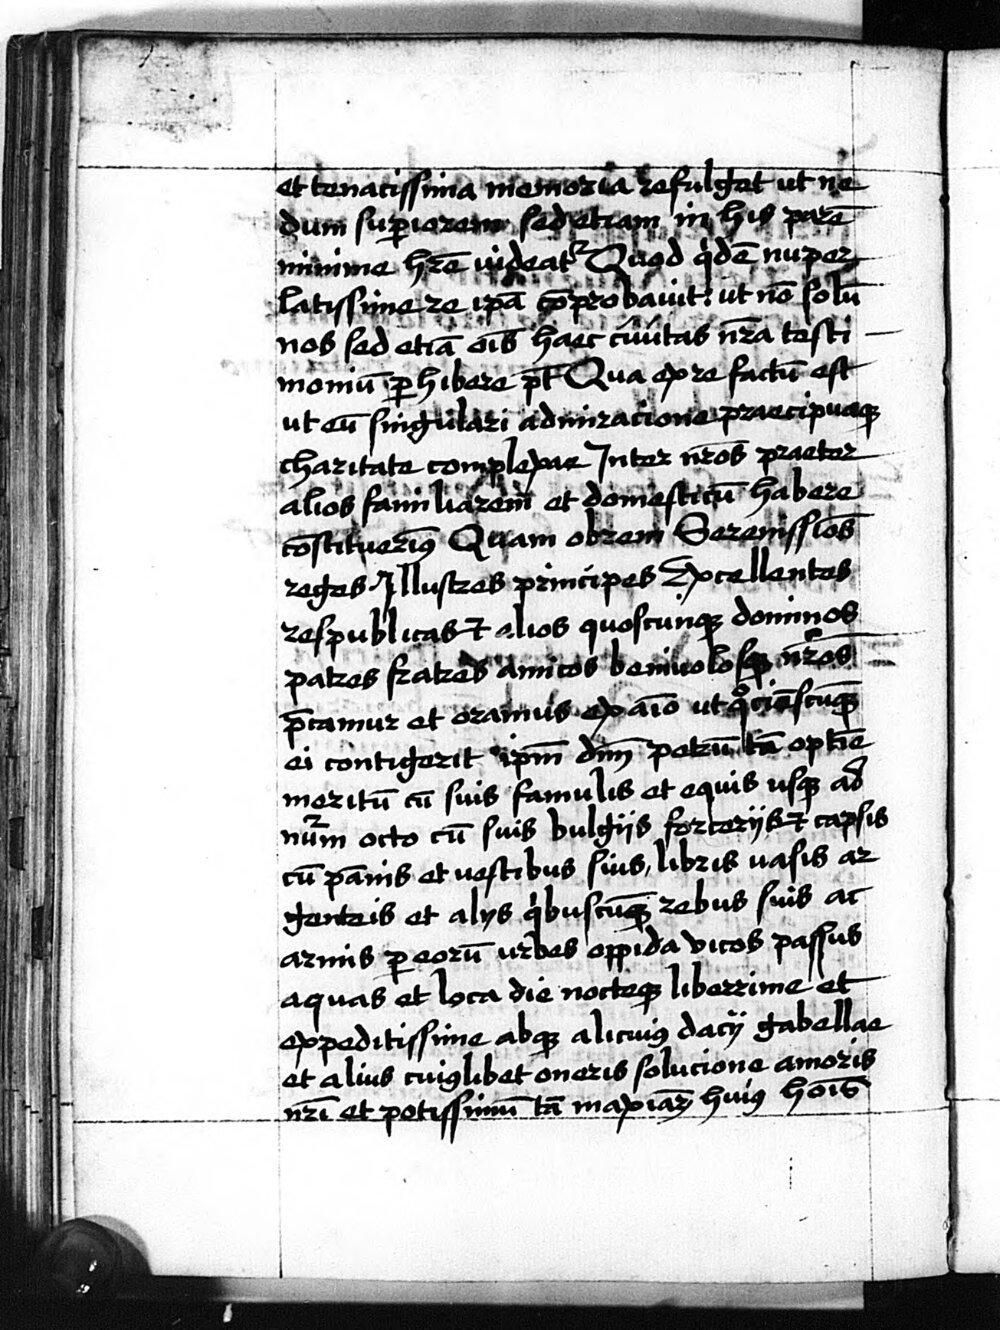 et tenacissima memoria refulget ut ne
dum sup̱iorem sed etiam in his parē
minime hr̄e uideat᷑ Quod q'dē nuper
latissime re ipā cōprobauit: ut nō solū
nos sed etiā oīs haec ciuitas nr̄a testi
moniū ꝑhibere pt̄ Qua ex re factū est
ut eū singulari admiracione praecipuaqꝫ
charitate complexae Inter nr̄os praeter
alios familiarem et domesticū habere
cōstituerim9 Quam obrem Serenissīos
reges Illustres principes Excellentes
respublicas ⁊ alios quoscunqꝫ dominos
patres fratres amicos beniuolosqꝫ nr̄os
p̄camur et oramus ex aīo ut qo̊ciēscūqꝫ
ei contigerit ip̄m dn̄m petrū tā optīe
meritū cū suis famulis et equis usqꝫ ad
nūm octo cū suis bulgijs forcerijs ⁊ capsis
cū pānis et uestibus suis, libris uasis ar
genteis et alijs q'buscūqꝫ rebus suis ac
armis ꝑ eorū urbes oppida vicos passus
aquas et loca die nocteqꝫ liberrime et
expeditissime absqꝫ alicui9 dacij gabellae
et alius cui9libet oneris solucione amoris
nr̄i et potissimū tā maxiaꝝ hui9 hoīs